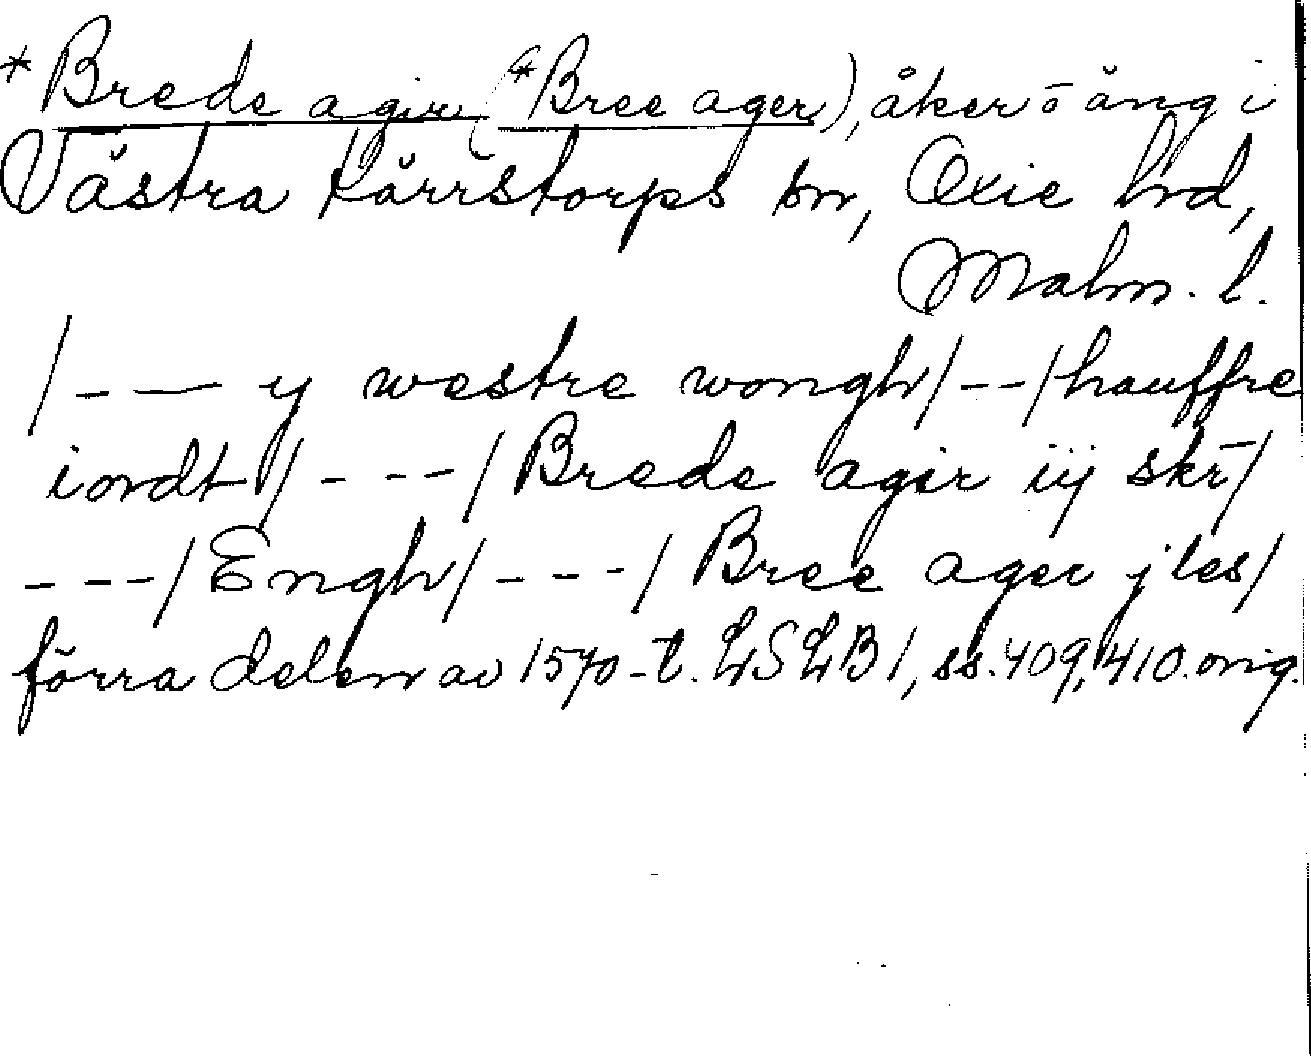 *Brede agir (*Bree ager), åker o äng i
Västra Kärrstorps sn, Oxie hrd,
Malm. l.
/– — y westre wongh/ – – /hauffre
iordt/ – - - – / Brede agir iij skr̄/
– – – / Engh/ – - - - / Bree ager j les/
förra delen av 1570-t. LSLB 1, ss. 409, 410. orig.